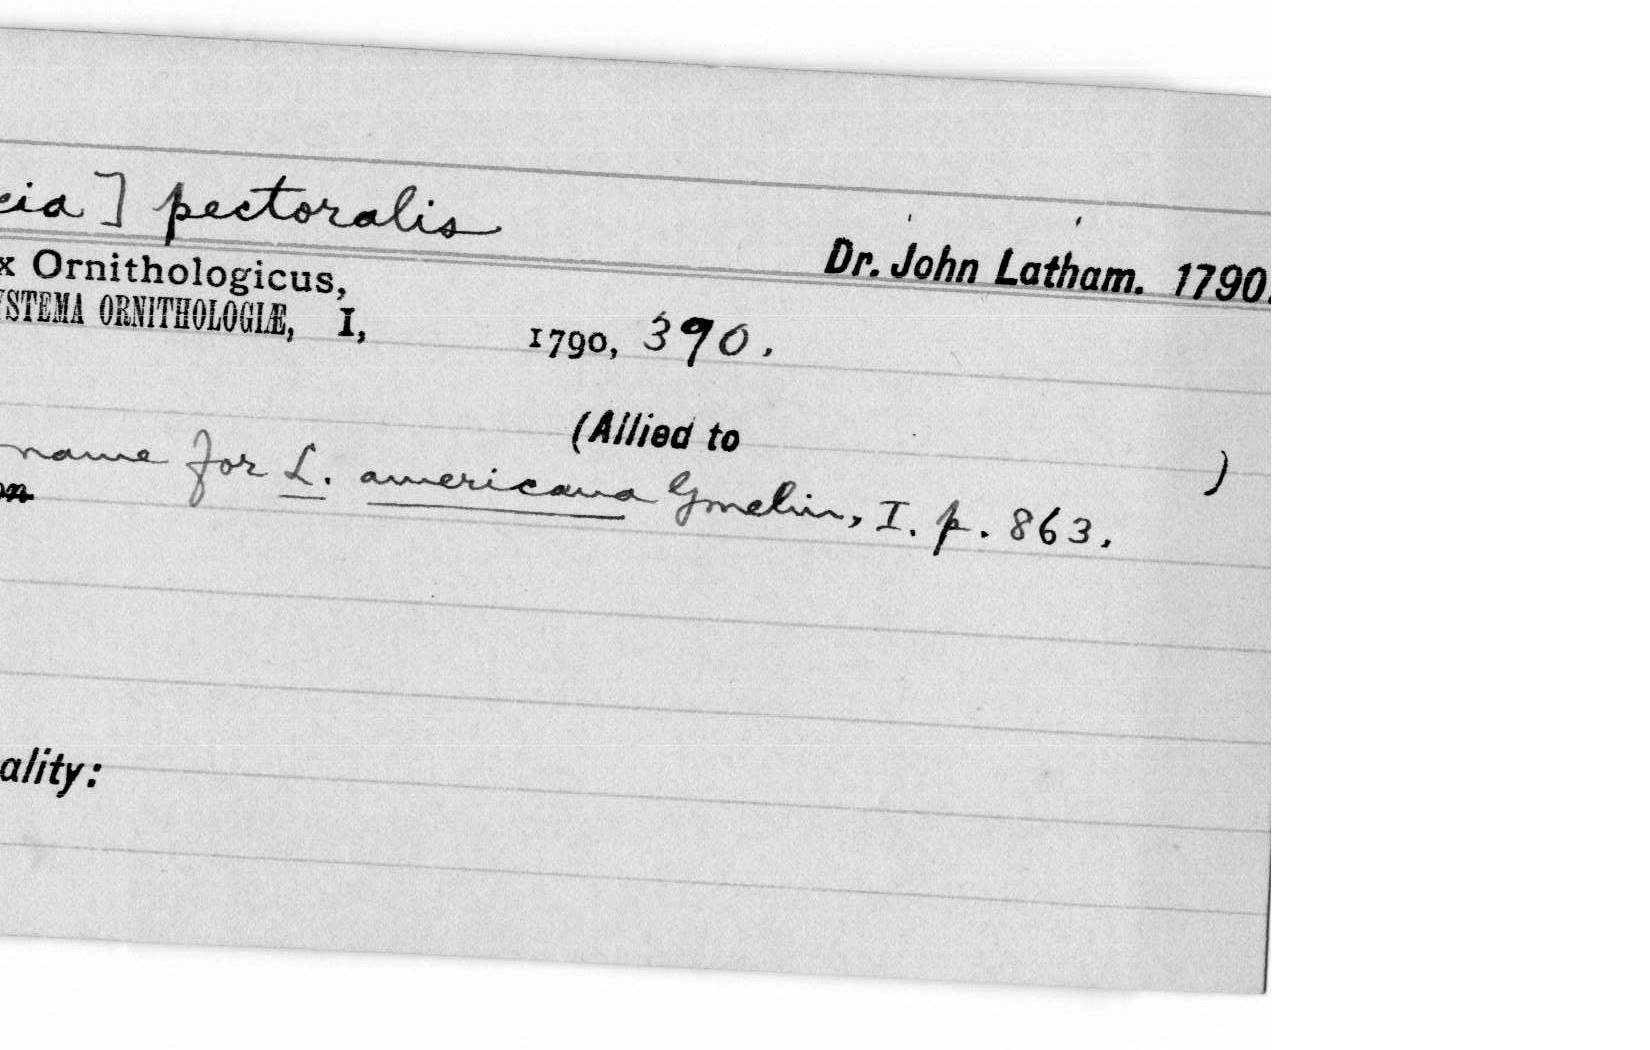 cia] pectoralis
Dr. John Latham. 1790.
x Ornithologicus,
YSTEMA ORNITHOLOGIÆ, I, 1790, 390.
(Allied to )
name for L. americana Gmelin, I. p. 863.
on
ality: